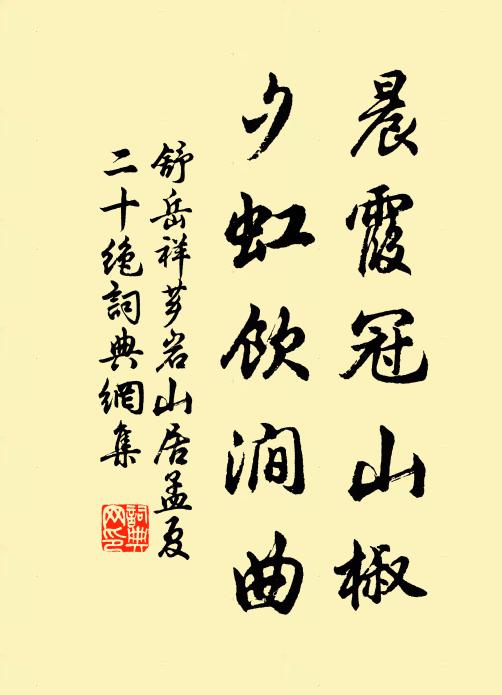 晨霞冠山椒
夕虹飲澗曲
舒岳祥芗岩山居孟夏
二十絶詞典網集
詞典
网印